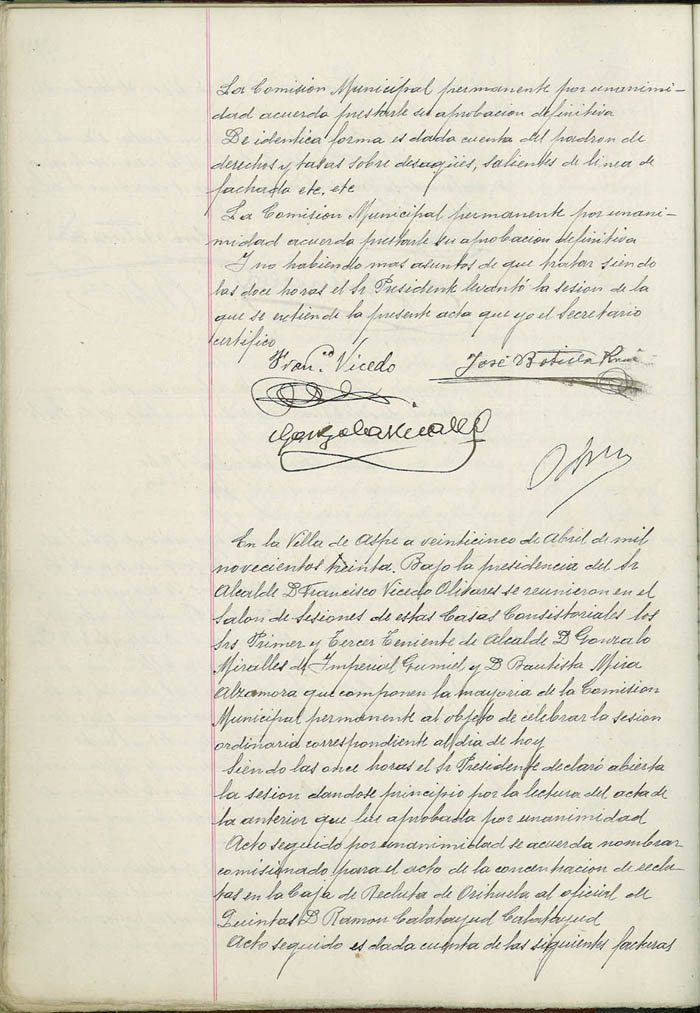 La Comision Municipal permanente por unanimi-
dad acuerda prestarle su aprobacion definitiva
De identica forma es dada cuenta del padron de
derechos y tasas sobre desagües, salientes de linea de
fachada etc. etc
La Comision Municipal permanente por unani-
midad acuerda prestarle su aprobacion definitiva
Y no habiendo mas asuntos de que tratar siendo
las doce horas el Sr Presidente levantó la sesion de la
que se extiende la presente acta que yo el Secretario
certifico
Fran.co Vicedo José Botella
En la Villa de Aspe a veinticinco de Abril de mil
novecientos treinta. Bajo la presidencia del Sr
Alcalde D Francisco Vicedo Olivares se reunieron en el
Salon de Sesiones de estas Casas Consistoriales los
Srs Primer y Tercer Teniente de Alcalde D Gonzalo
Miralles de Imperial Gumiel y D Bautista Mira
Alzamora que componen la mayoria de la Comision
Municipal permanente al objeto de celebrar la sesion
ordinaria correspondiente al dia de hoy
Siendo las once horas el Sr Presidente declaró abierta
la sesion dandose principio por la lectura del acta de
la anterior que fue aprobada por unanimidad
Acto seguido por unanimidad se acuerda nombrar
comisionado para el acto de la concentracion de reclu-
tas en la Caja de Recluta de Orihuela al oficial de
Quintas D Ramon Calatayud Calatayud
Acto seguido es dada cuenta de las siguientes facturas